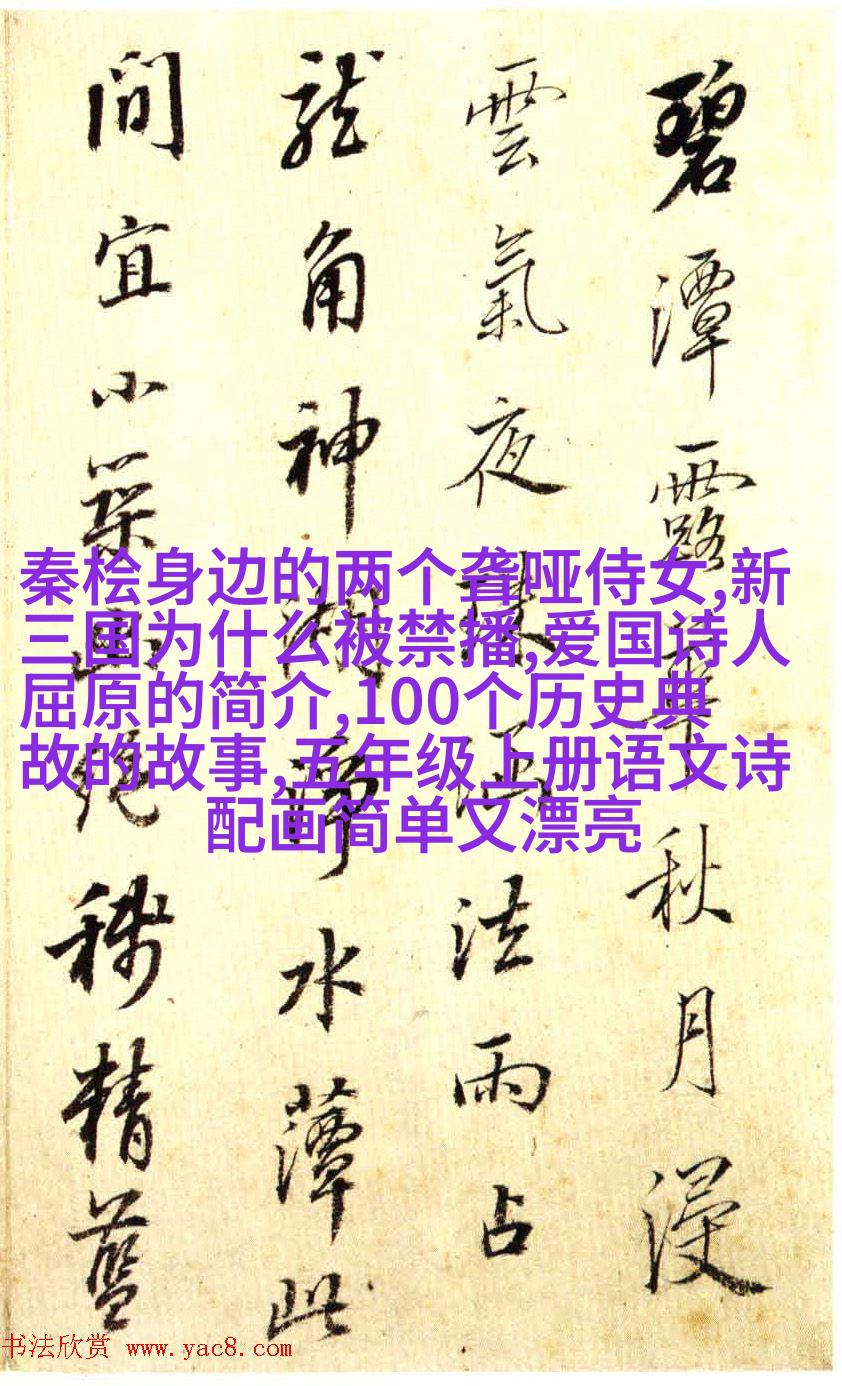 碧潭露華秋月浸
雲氣夜珠涵法雨占
龍角神湖淨水藫此
間宜小築幽絕稱精藍
秦桧身边的两个聋哑侍女,新
三国为什么被禁播,爱国诗人
屈原的简介,100个历史典
故的故事,五年级上册语文诗
配画简单又漂亮
书法欣赏 www.yac8.com